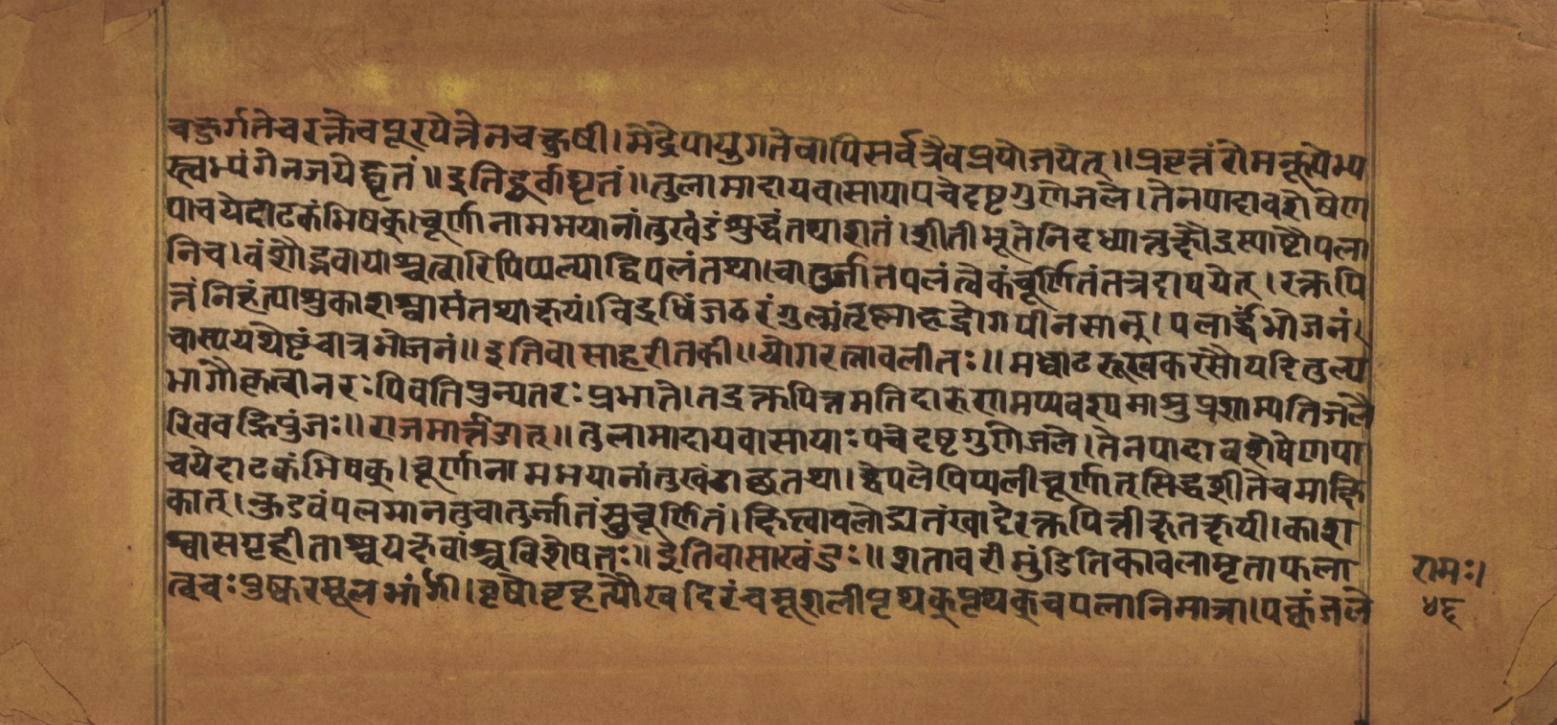 चक्षुर्गतेचरक्तेचपूरयेत्तेनचक्षुषी।मेढ्रेपायुगतेवापिसर्वत्रैवप्रयोजयेत्॥प्रवृत्तंरोमकूपेभ्य
स्त्वभ्यंगेनजयेद्घृतं॥इतिदूर्वाघृतं॥तुलामादायवासायापचेदष्टगुणेजले।तेनपादावशेषेण
पाचयेदाढकंभिषक्।चूर्णानामभयानांतुखंडंशुद्धंतथाशतं।शीतीभूतेनिदध्यात्तुक्षौद्रस्याष्टौपला
निच।वंशोद्भवायाश्चत्वारिपिप्पल्याद्विपलंतथा।चातुर्जातपलंत्वेकंचूर्णितंतत्रदापयेत्।रक्तपि
त्तंनिहंत्याशुकाशश्वासंतथाक्षयं।विद्रधिंजठरंगुल्मंतृष्णाहृद्रोगपीनसान्।पलार्द्धंभोजनं।
चास्ययथेष्टंचात्रभोजनं॥इतिवासाहरीतकी॥योगरत्नावलीतः॥मध्वाटरूखकरसौयदितुल्य
भागौकृत्वानरःपिवतिपुन्यतरःप्रभाते।तद्रक्तपित्तमतिदारुणमप्यवश्यमाशुप्रशाम्यतिजलै
रिववह्निपुंजः॥राजमार्त्तंडात्॥तुलामादायवासायाःपचेदष्टगुणेजले।तेनपादावशेषेणपा
चयेदाढकंभिषक्।चूर्णानामभयानांतुखंडाछतथा।द्वेपलेपिप्पलीचूर्णात्सिद्धशीतेचमाक्षि
कात्।कुडवंपलमानतुचातुर्जातंसुचूर्णितं।क्षिप्त्वावलोड्यतंखादेरक्तपित्तीक्षतक्षयी।काश
श्वासगृहीताश्चयक्षवांश्चविशेषतः॥इतिवासाखंडः॥शतावरीमुंडितिकावलामृताफला
त्वचःपुष्करमूलभांर्गी।वृषोवृहत्यौखदिरंचमूशलीपृथक्पृथक्चपलानिमात्रा।पक्वंजले
रामः।
४६